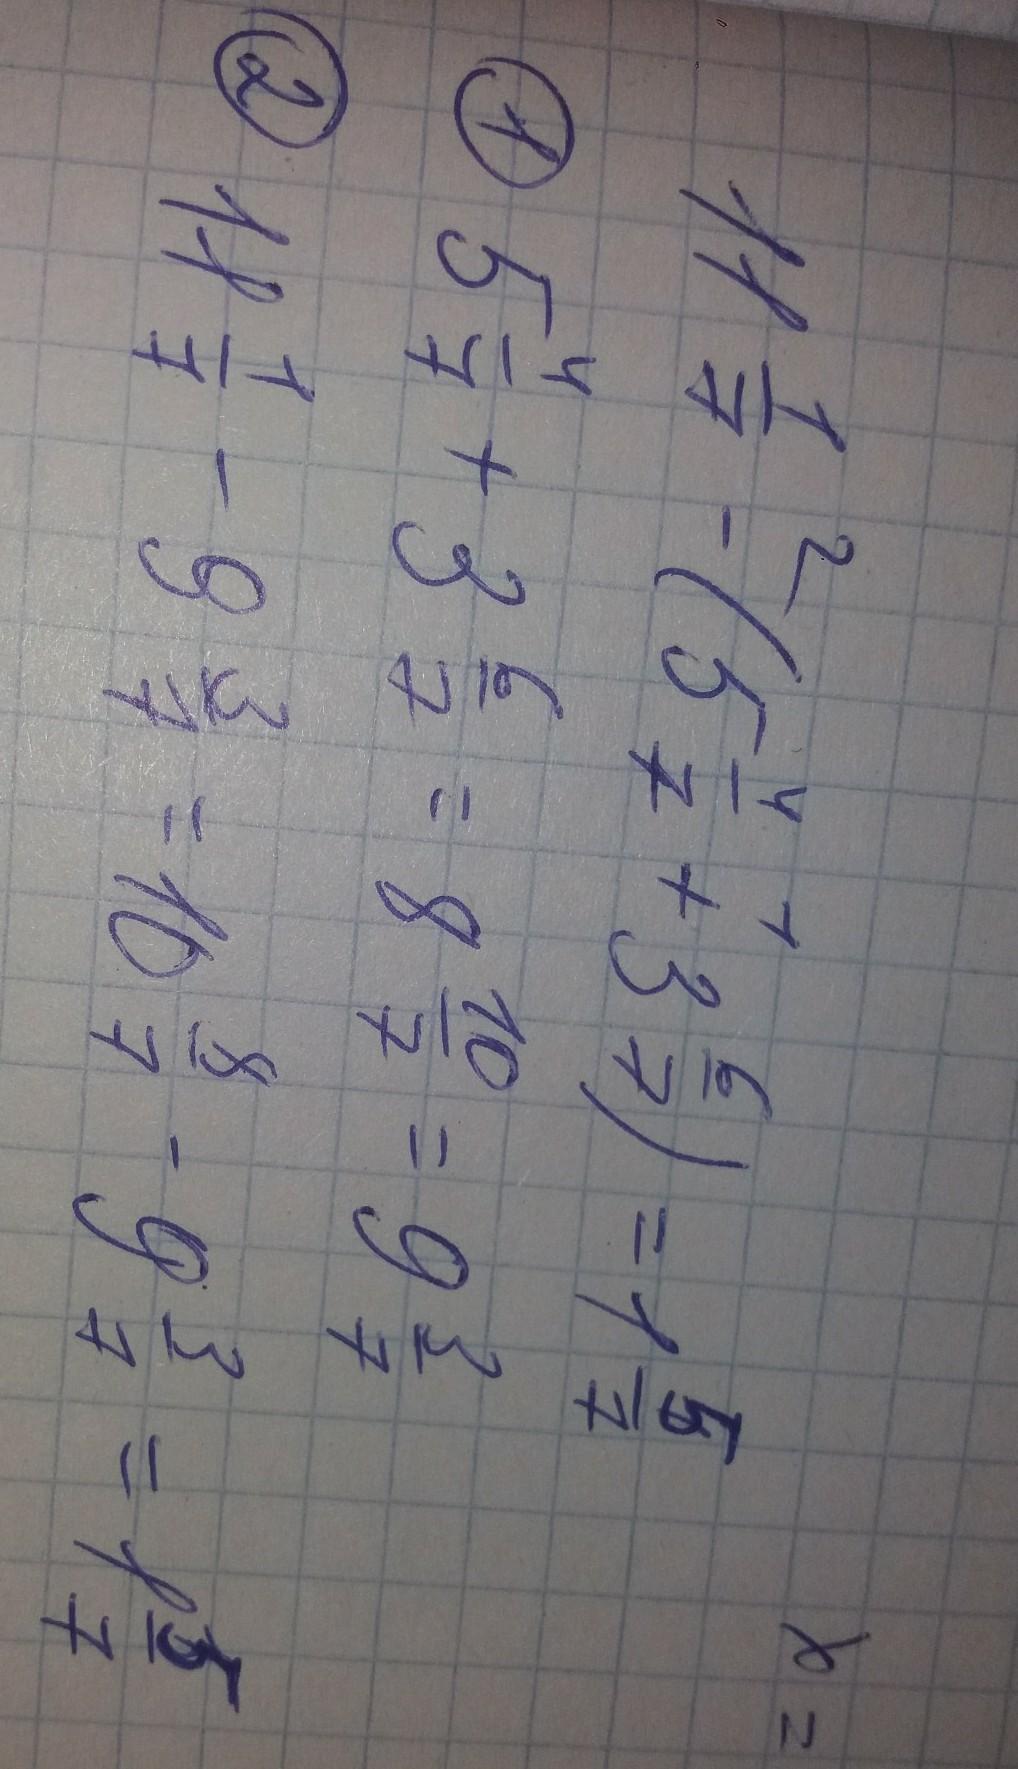 x =
2 1
11 1/7 - (5 4/7 + 3 6/7) = 1 5/7
① 5 4/7 + 3 6/7 = 8 10/7 = 9 3/7
② 11 1/7 - 9 3/7 = 10 8/7 - 9 3/7 = 1 5/7